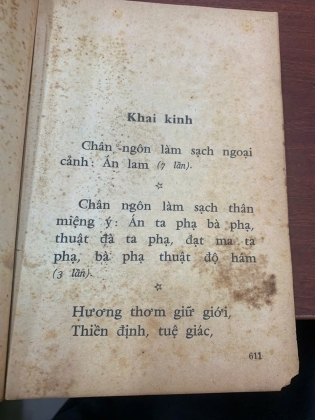 Khai kinh
Chân ngôn làm sạch ngoại
cảnh: Án lam (7 lần).
☆
Chân ngôn làm sạch thân
miệng ý: Án ta phạ bà phạ,
thuật đà ta phạ, đạt ma ta
phạ, bà phạ thuật độ hám
(3 lần).
☆
Hương thơm giữ giới,
Thiền định, tuệ giác,
611